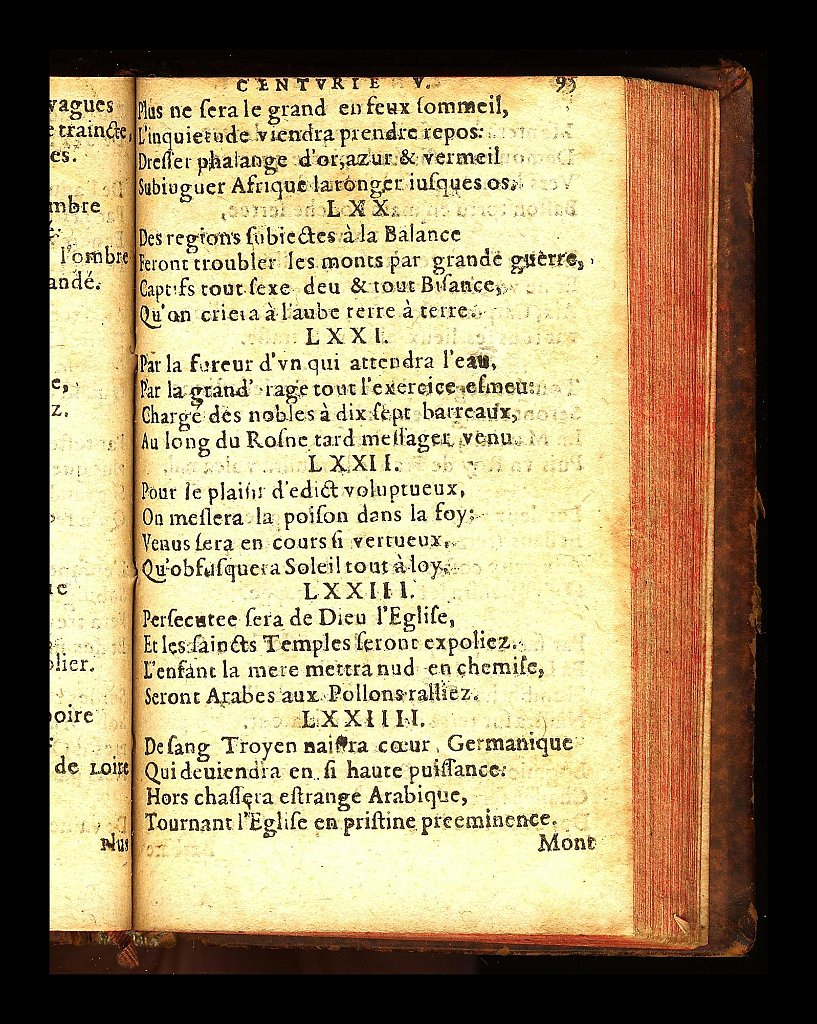 vagues
e traincte,
es.
mbre
é.
l'ombre
andé.
e,
z.
ic
olier.
poire
de Loire
Plus
CENTVRIE V. 95
Plus ne ſera le grand en feux ſommeil,
L'inquietude viendra prendre repos:
Dreſſer phalange d'or, azur & vermeil
Subiuguer Afrique la ronger iuſques os.
LXX.
Des regions ſubiectes à la Balance
Feront troubler les monts par grande guerre,
Captifs tout ſexe deu & tout Biſance,
Qu'on criera à l'aube terre à terre.
LXXI.
Par la fureur d'vn qui attendra l'eau,
Par la grand' rage tout l'exercice eſmeu:
Chargé des nobles à dix ſept barreaux,
Au long du Roſne tard meſſager venu.
LXXII.
Pour le plaiſir d'edict voluptueux,
On meſlera la poiſon dans la foy:
Venus ſera en cours ſi vertueux,
Qu'obfuſquera Soleil tout à loy.
LXXIII.
Perſecutee ſera de Dieu l'Egliſe,
Et les ſaincts Temples ſeront expoliez.
L'enfant la mere mettra nud en chemiſe,
Seront Arabes aux Pollons ralliez.
LXXIIII.
De ſang Troyen naiſtra cœur Germanique
Qui deuiendra en ſi haute puiſſance:
Hors chaſſera eſtrange Arabique,
Tournant l'Egliſe en priſtine preeminence.
Mont